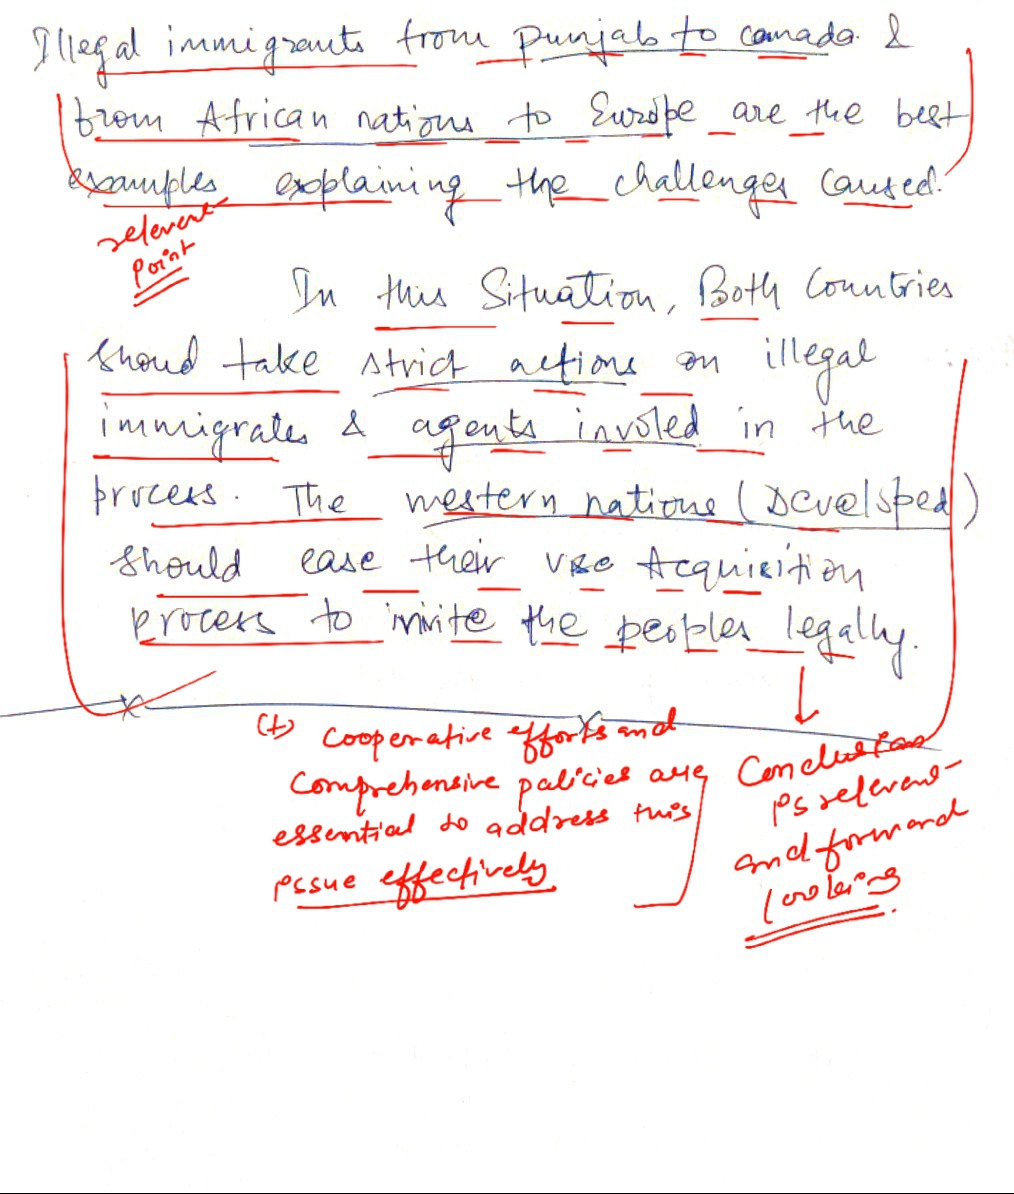 Illegal immigrants from Punjab to canada &
from African nations to Europe are the best
examples explaining the challenges caused.
relevant
point
In this Situation, Both Countries
shoud take strict actions on illegal
immigrates & agents involed in the
process. The western nations (Developed)
should ease their vise Acquisition
process to invite the peoples legally.
(+) Cooperative efforts and
comprehensive policies are
essential to address this
issue effectively
Conclusion
is relevant
and forward
looking